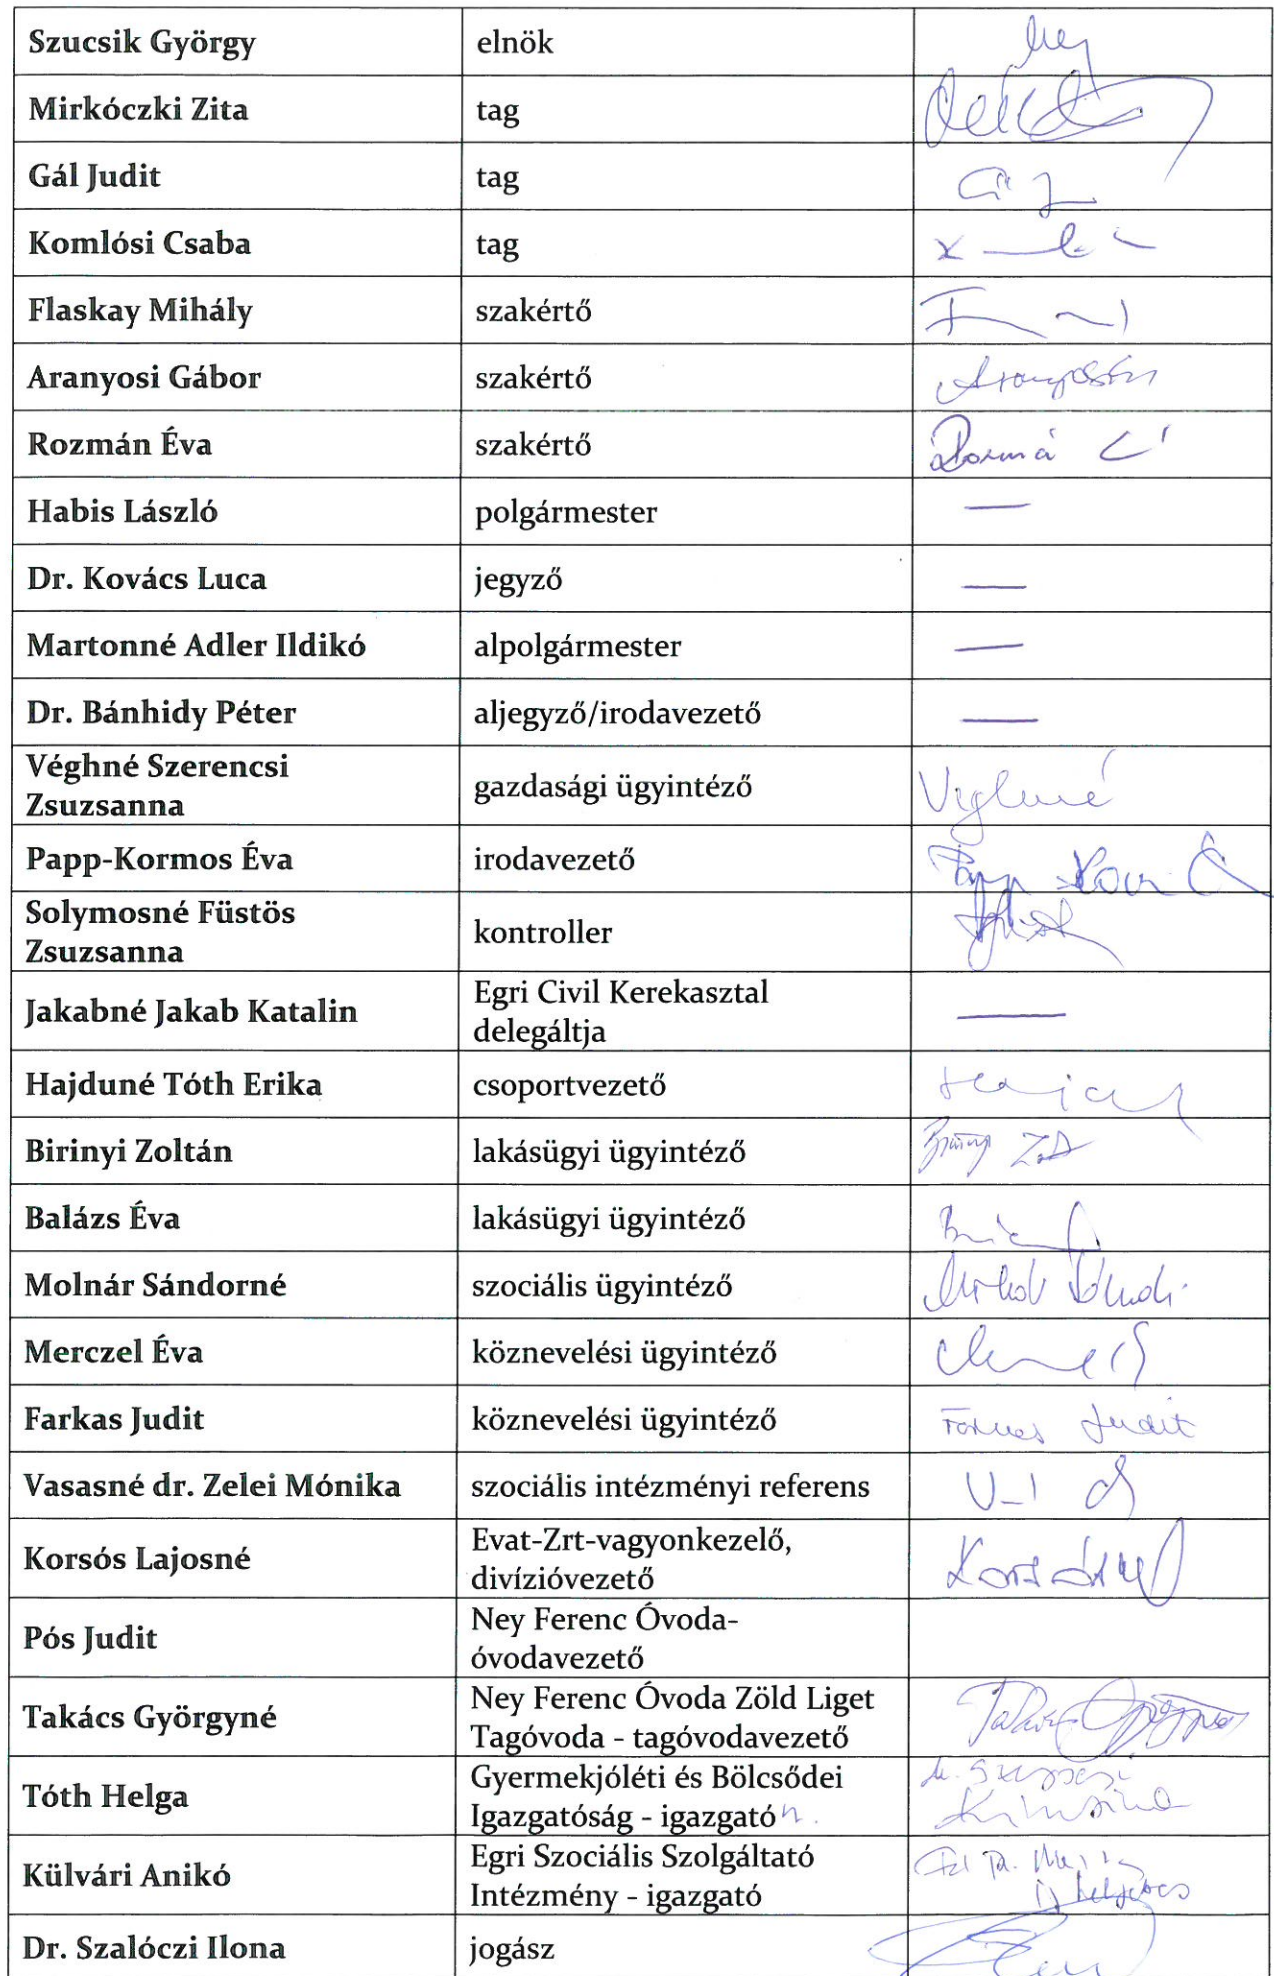 Szucsik György elnök
Mirkóczki Zita tag
Gál Judit tag
Komlósi Csaba tag
Flaskay Mihály szakértő
Aranyosi Gábor szakértő
Rozmán Éva szakértő
Habis László polgármester —
Dr. Kovács Luca jegyző —
Martonné Adler Ildikó alpolgármester —
Dr. Bánhidy Péter aljegyző/irodavezető —
Véghné Szerencsi
Zsuzsanna
gazdasági ügyintéző Véghné
Papp-Kormos Éva irodavezető
Solymosné Füstös
Zsuzsanna
kontroller
Jakabné Jakab Katalin
Egri Civil Kerekasztal
delegáltja
—
Hajduné Tóth Erika csoportvezető
Birinyi Zoltán lakásügyi ügyintéző
Balázs Éva lakásügyi ügyintéző
Molnár Sándorné szociális ügyintéző
Merczel Éva köznevelési ügyintéző
Farkas Judit köznevelési ügyintéző Farkas Judit
Vasasné dr. Zelei Mónika szociális intézményi referens
Korsós Lajosné
Evat-Zrt-vagyonkezelő,
divízióvezető
Korsósné
Pós Judit
Ney Ferenc Óvoda-
óvodavezető
Takács Györgyné
Ney Ferenc Óvoda Zöld Liget
Tagóvoda - tagóvodavezető
Takács Györgyné
Tóth Helga
Gyermekjóléti és Bölcsődei
Igazgatóság - igazgató
Külvári Anikó
Egri Szociális Szolgáltató
Intézmény - igazgató
Dr. Szalóczi Ilona jogász